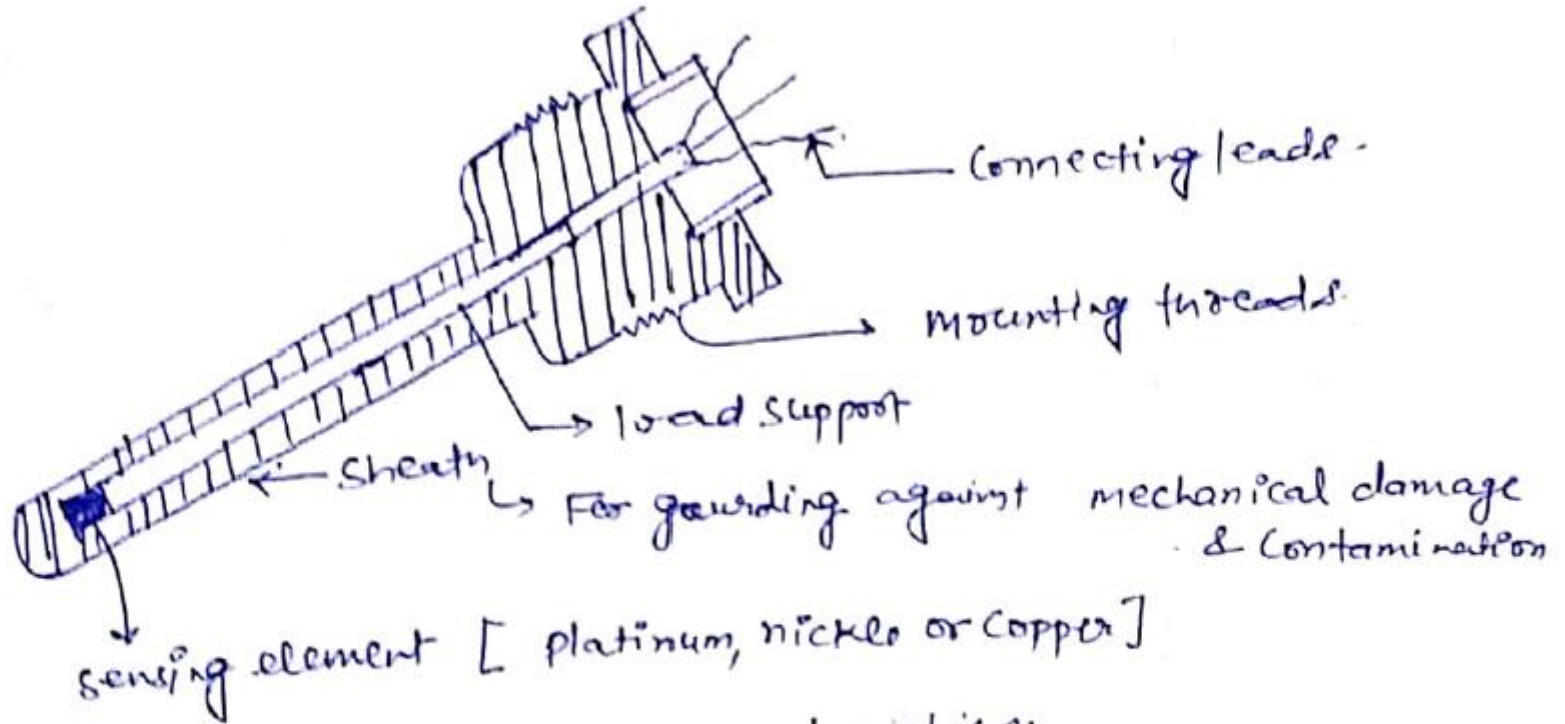 Connecting leads.
mounting threads.
load support
Sheath
↳ For gaurding against mechanical damage
& Contamination
sensing element [ platinum, nickle or Copper ]